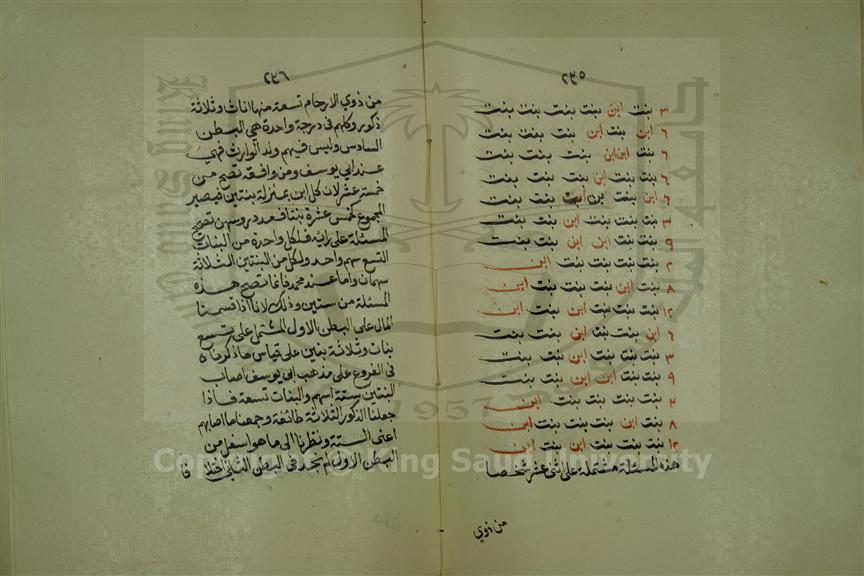 ٢٩٥
٣ بنت ابن بنت بنت بنت بنت
٦ ابن بنت ابن بنت بنت بنت
٦ بنت ابن ابن بنت بنت بنت
٦ بنت بنت ابن بنت بنت بنت
٦ ابن بنت بنت بنت بنت
٣ بنت بنت بنت ابن بنت بنت
٩ بنت بنت ابن ابن بنت بنت
٢ بنت بنت بنت بنت بنت ابن
٨ بنت ابن بنت بنت بنت ابن
١٢ بنت بنت بنت ابن بنت ابن
٦ ابن بنت بنت ابن بنت بنت
٣ بنت بنت بنت ابن بنت بنت
٩ بنت بنت ابن ابن بنت بنت
٢ بنت بنت بنت بنت بنت ابن
٨ بنت ابن بنت بنت بنت ابن
١٢ بنت بنت بنت ابن بنت ابن
هذه المسئلة مشتملة على اثنى عشر شخصا
من ذوي
٢٩٦
من ذوي الارحام تسعة منها اناث وثلاثة
ذكور وكلهم فى درجة واحدة هى البطن
السادس وليس فيهم ولد الوارث فهى
عند ابى يوسف ومن وافقه تصح من
خمسة عشر لان كل ابن بمنزلة بنتين فيصير
المجموع كخمس عشرة بنتا فعدد رؤسهن تصحيح
المسئلة على رائه فلكل واحدة من البنات
التسع سهم واحد ولكل من البنتين الثلاثة
سهمان واما عند محمد فانما تصح هذه
المسئلة من ستين وذلك لانا اذا قسمنا
المال على البطن الاول المشتمل على تسع
بنات وثلاثة بنين على قياس ما ذكرناه
فى الفروع على مذهب ابى يوسف اصاب
البنين ستة اسهم والبنات تسعة فاذا
جعلنا الذكور الثلاثة طائفة وجمعنا ما اصابهم
اعنى الستة ونظرنا الى ما هو اسفل من
البطن الاول لم نجد فى البطن الثانى اختلافا
Copyright © King Saud University
1957